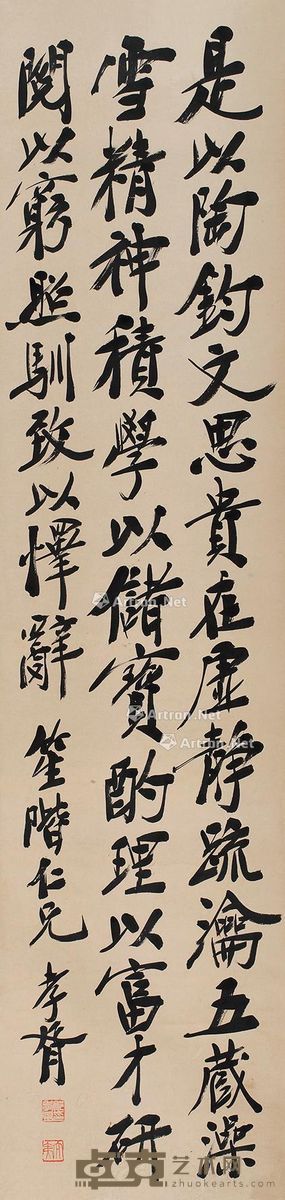 是以陶鈞文思貴在虛靜疏瀹五藏澡
雪精神積學以儲寶酌理以富才研
閱以窮照馴致以懌辭 笙階仁兄 孝胥
Artron.Net
Artron.Net
Artron.Net
Artron.Net
卓克艺术网
zhuokearts.com